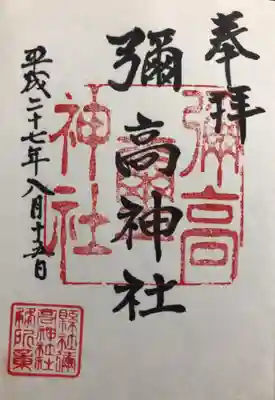 奉拝
彌高神社
平成二十七年八月十五日
彌高
神社
縣社彌
高神社社
務所章